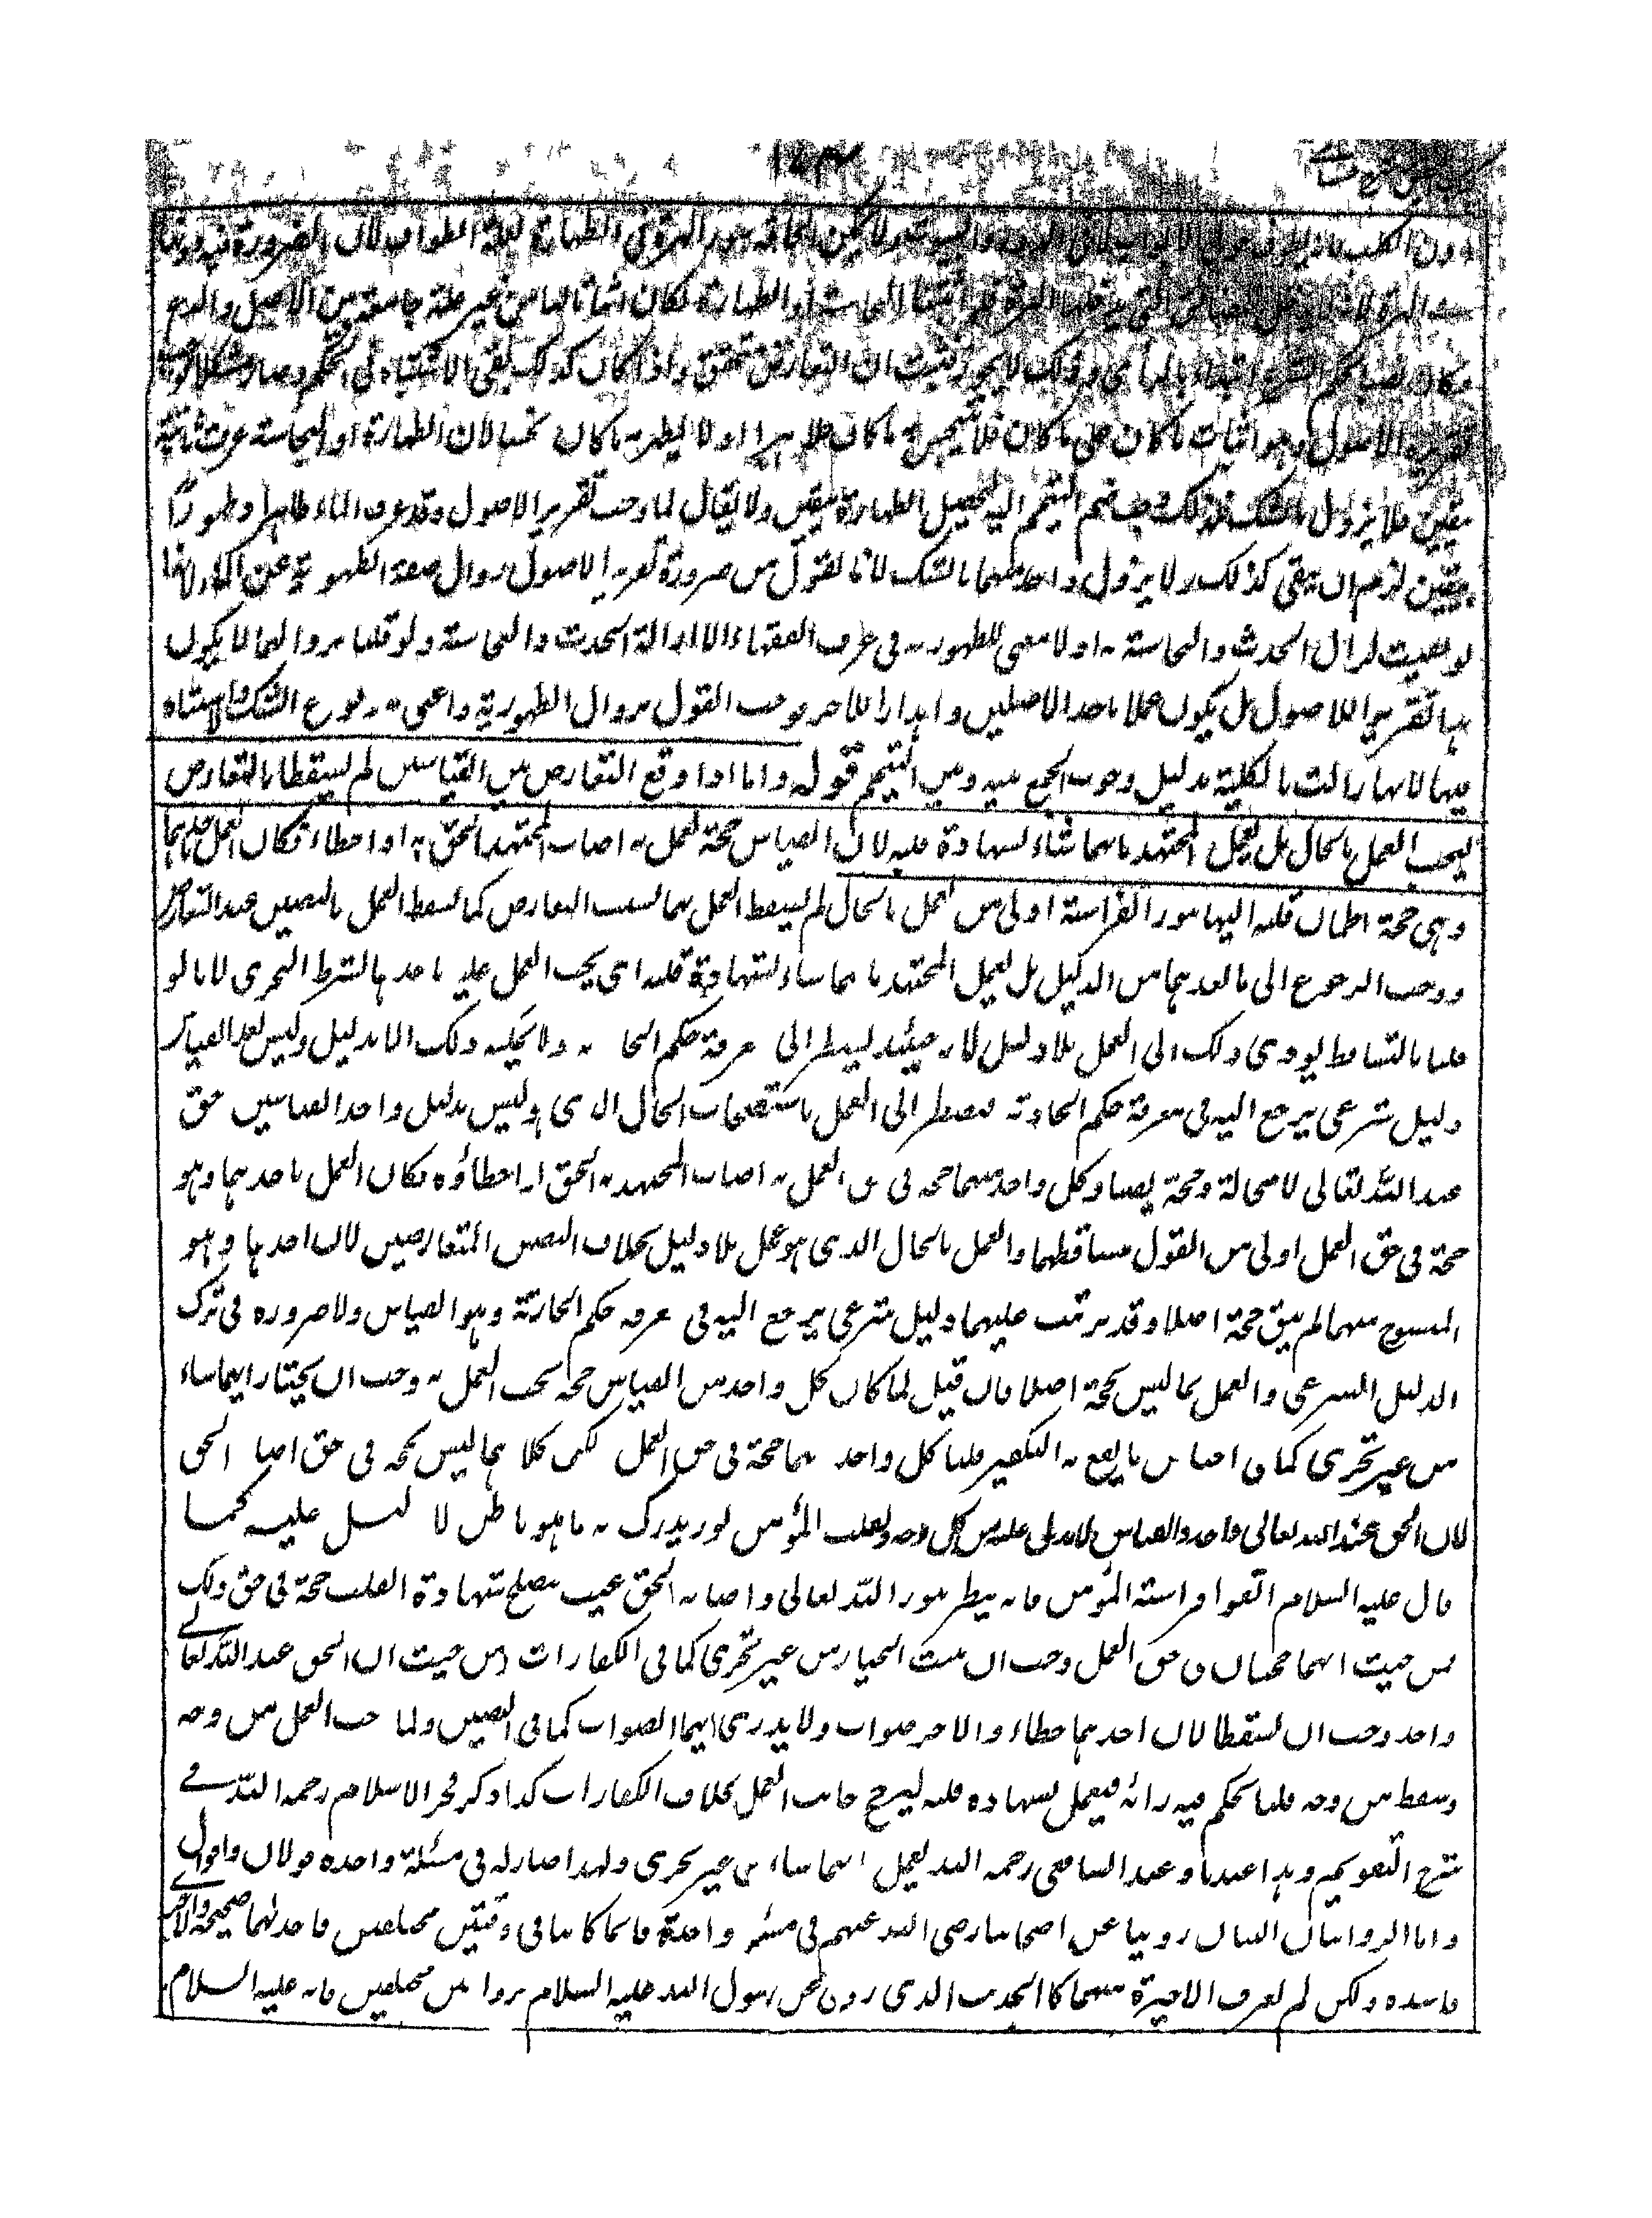 دون الكلب لانه لا يكون على الابواب لا فى الدور والبيوت ولا يمكن الحاقه بسور الهرة فى الطهارة لعلة الطواف لان الضرورة فيه دونها
فى الهرة لانها تدخل المضايق التى لا يدخلها الحمار فلو اثبتنا النجاسة او الطهارة لكان اثباتا لها من غير علة جامعة بين الاصل والفرع
فكان نصبا لحكم الشرع ابتداء بالرأى وذلك لا يجوز فثبت ان التعارض تحقق واذا كان كذلك بقى الاشتباه فى الحكم وصار مشكلا فوجب
تقرير الاصول وهو اثبات ما كان على ما كان فلا يتنجس به ما كان طاهرا ولا يطهر به ما كان نجسا لان الطهارة او النجاسة عرفت ثابتة
بيقين فلا يزول بالشك فلذلك وجب ضم التيمم اليه لتحصيل الطهارة بيقين ولا يقال لما وجب تقرير الاصول وقد عرف الماء طاهرا وطهورًا
بيقين لزم ان يبقى كذلك ولا يزول واحد منهما بالشك لانا نقول من ضرورة تقرير الاصول زوال صفة الطهورية عن الماء لانها
لو بقيت لزال الحدث والنجاسة به اذ لا معنى للطهورية فى عرف الفقهاء الا ازالة الحدث والنجاسة ولو قلنا بزوالهما لا يكون
هذا تقريرا للاصول بل يكون عملا باحد الاصلين واهدارا للآخر فوجب القول بزوال الطهورية واعنى به وقوع الشك والاشتباه
فيها لا انها زالت بالكلية بدليل وجوب الجمع بينه وبين التيمم قوله واما اذا وقع التعارض بين القياسين لم يسقطا بالتعارض
ليجب العمل بالحال بل يعمل المجتهد بايهما شاء بشهادة قلبه لان القياس حجة يعمل به اصاب المجتهد الحق به او اخطاء فكان العمل باحدهما
وهى حجة اطمأن قلبه اليها بنور الفراسة اولى من العمل بالحال لم يسقط العمل بهما بسبب التعارض كما يسقط العمل بالنصين عند التعارض
ووجب الرجوع الى ما بعدهما من الدليل بل يعمل المجتهد بايهما شاء بشهادة قلبه اى يجب العمل عليه باحدهما بشرط التحرى لانا لو
قلنا بالتساقط يؤدى ذلك الى العمل بلا دليل لانه حينئذ يضطر الى معرفة حكم الحادثة ولا يمكنه ذلك الا بدليل وليس بعد القياس
دليل شرعى يرجع اليه فى معرفة حكم الحادثة فيضطر الى العمل باستصحاب الحال الذى ليس بدليل واحد القياسين حق
عند الله تعالى لا محالة وحجة يقينا وكل واحد منهما حجة فى حق العمل به اصاب المجتهد به الحق او اخطأه فكان العمل باحدهما وهو
حجة فى حق العمل اولى من القول بتساقطهما والعمل بالحال الذى هو عمل بلا دليل بخلاف النصين المتعارضين لان احدهما وهو
المنسوخ منهما لم يبق حجة اصلا وقد يرتب عليهما دليل شرعى يرجع اليه فى معرفة حكم الحادثة وهو القياس ولا ضرورة فى ترك
الدليل الشرعى والعمل بما ليس بحجة اصلا فان قيل لما كان كل واحد من القياسين حجة يجب العمل به وجب ان يختار ايهما شاء
من غير تحرى كما فى اجناس ما يقع به التكفير قلنا كل واحد منهما حجة فى حق العمل لكن كلاهما ليس بحجة فى حق اصابة الحق
لان الحق عند الله تعالى واحد والقياس لا يدل عليه من كل وجه ولقلب المؤمن نور يدرك به ما هو باطن لا دليل عليه كما
قال عليه السلام اتقوا فراسة المؤمن فانه ينظر بنور الله تعالى واصابة الحق غيب فيصلح شهادة القلب حجة فى حق ذلك
فمن حيث انهما حجتان فى حق العمل وجب ان يثبت الخيار من غير تحرى كما فى الكفارات ومن حيث ان الحق عند الله تعالى
واحد وجب ان يسقطا لان احدهما خطاء والآخر صواب ولا يدرى ايهما الصواب كما فى النصين ولما وجب العمل من وجه
وسقط من وجه قلنا يحكم فيه رأيه فيعمل بشهادة قلبه ليرجح جانب العمل بخلاف الكفارات كذا ذكر فخر الاسلام رحمه الله فى
شرح التقويم وهذا عندنا وعند الشافعى رحمه الله يعمل ايهما شاء من غير تحرى ولهذا صار له فى مسئلة واحدة قولان واقوال
واما الروايتان اللتان رويتا عن اصحابنا رضى الله عنهم فى مسئلة واحدة فانما كانتا فى وقتين مختلفين فاحداهما صحيحة والاخرى
فاسدة ولكن لم تعرف الاخيرة منهما كالحديث الذى روى عن رسول الله عليه السلام بروايتين مختلفين فانه عليه السلام